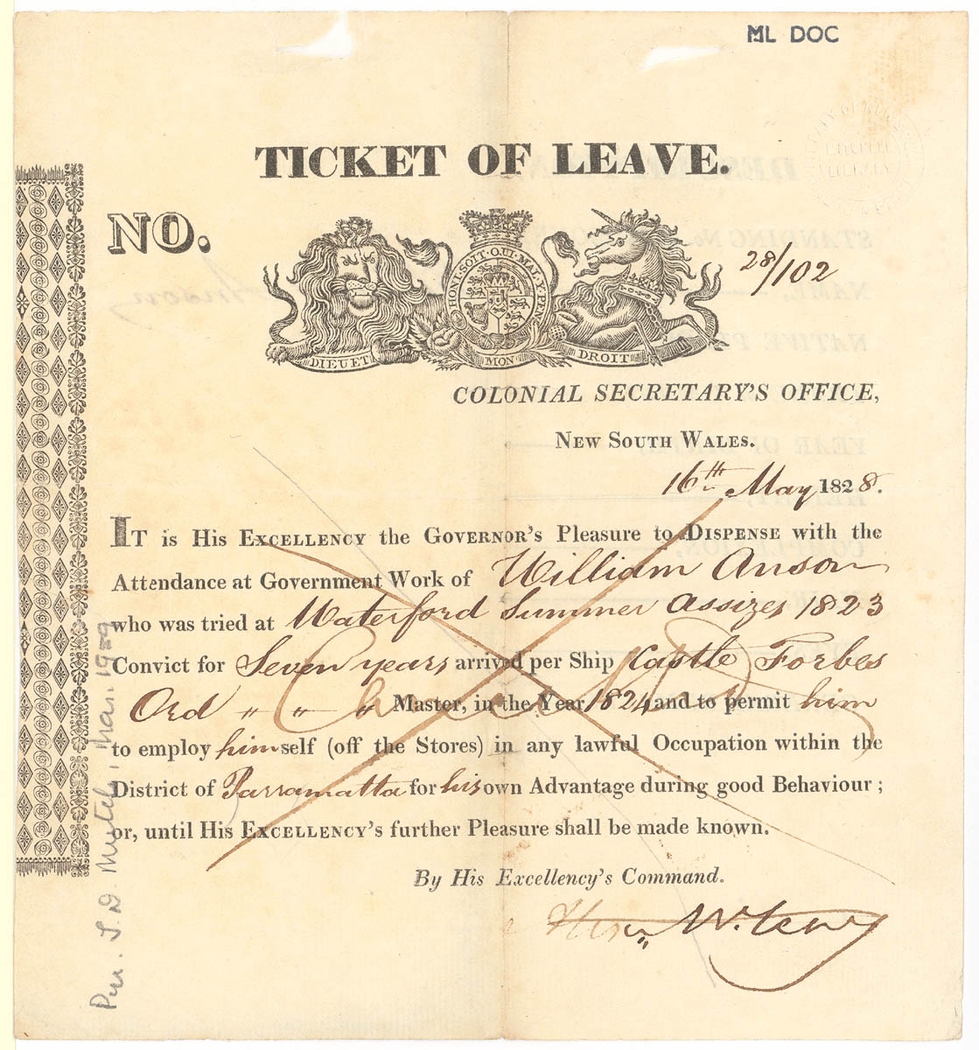 ML DOC
TICKET OF LEAVE.
NO.
28/102
HONI·SOIT·QUI·MAL·Y·PEN
DIEU ET MON DROIT
COLONIAL SECRETARY'S OFFICE,
NEW SOUTH WALES.
16th May 1828.
IT is His EXCELLENCY the GOVERNOR'S Pleasure to DISPENSE with the
Attendance at Government Work of William Anson
who was tried at Waterford Summer Assizes 1823
Convict for Seven years arrived per Ship Castle Forbes
Ord " " " Master, in the Year 1824 and to permit him
to employ himself (off the Stores) in any lawful Occupation within the
District of Parramatta for his own Advantage during good Behaviour;
or, until His EXCELLENCY'S further Pleasure shall be made known.
By His Excellency's Command.
Pur. T. D. Mutch, Mar. 1929